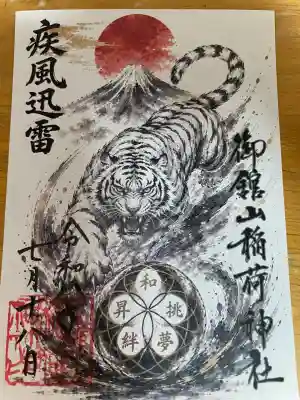 疾風迅雷
御舘山稲荷神社
令和
七月十八日
和
昇
挑
絆
夢